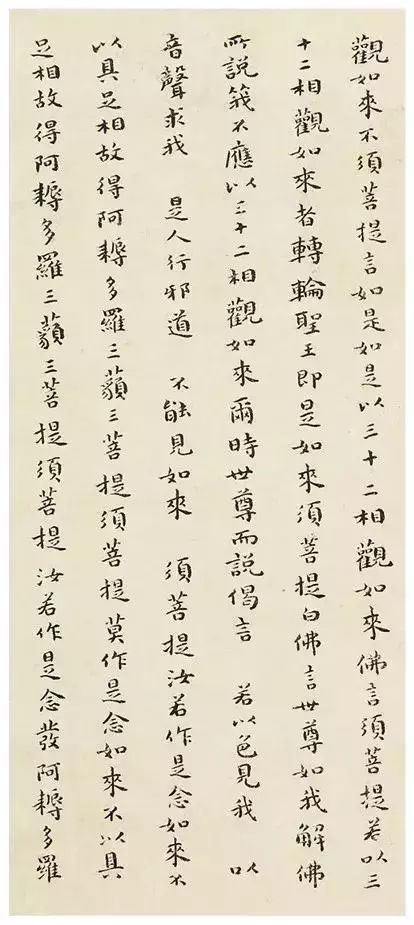 觀如來不須菩提言如是如是以三十二相觀如來佛言須菩提若以三
十二相觀如來者轉輪聖王即是如來須菩提白佛言世尊如我解佛
所說義不應以三十二相觀如來爾時世尊而說偈言 若以色見我 以
音聲求我 是人行邪道 不能見如來 須菩提汝若作是念如來不
以具足相故得阿耨多羅三藐三菩提須菩提莫作是念如來不以具
足相故得阿耨多羅三藐三菩提須菩提汝若作是念發阿耨多羅